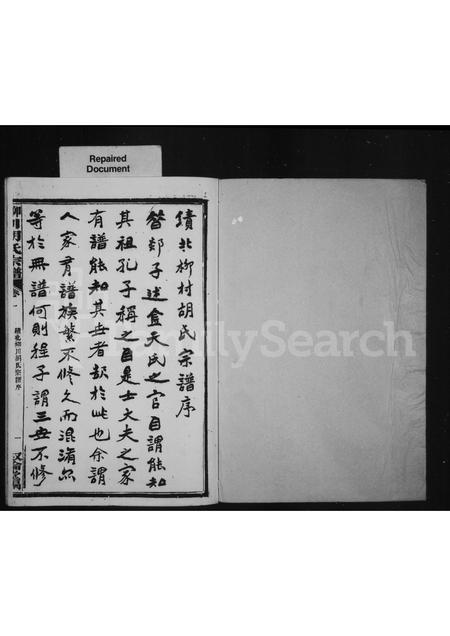 Repaired
Document
績北柳村胡氏宗譜序
昔郯子述金天氏之官自謂能知
其祖孔子稱之自是士大夫之家
有譜能知其世者却於此也余謂
人家有譜族繁不修久而混淆
等於無譜何則程子謂三世不修
柳川胡氏宗譜 卷
績北柳川胡氏宗譜序
一
FamilySearch